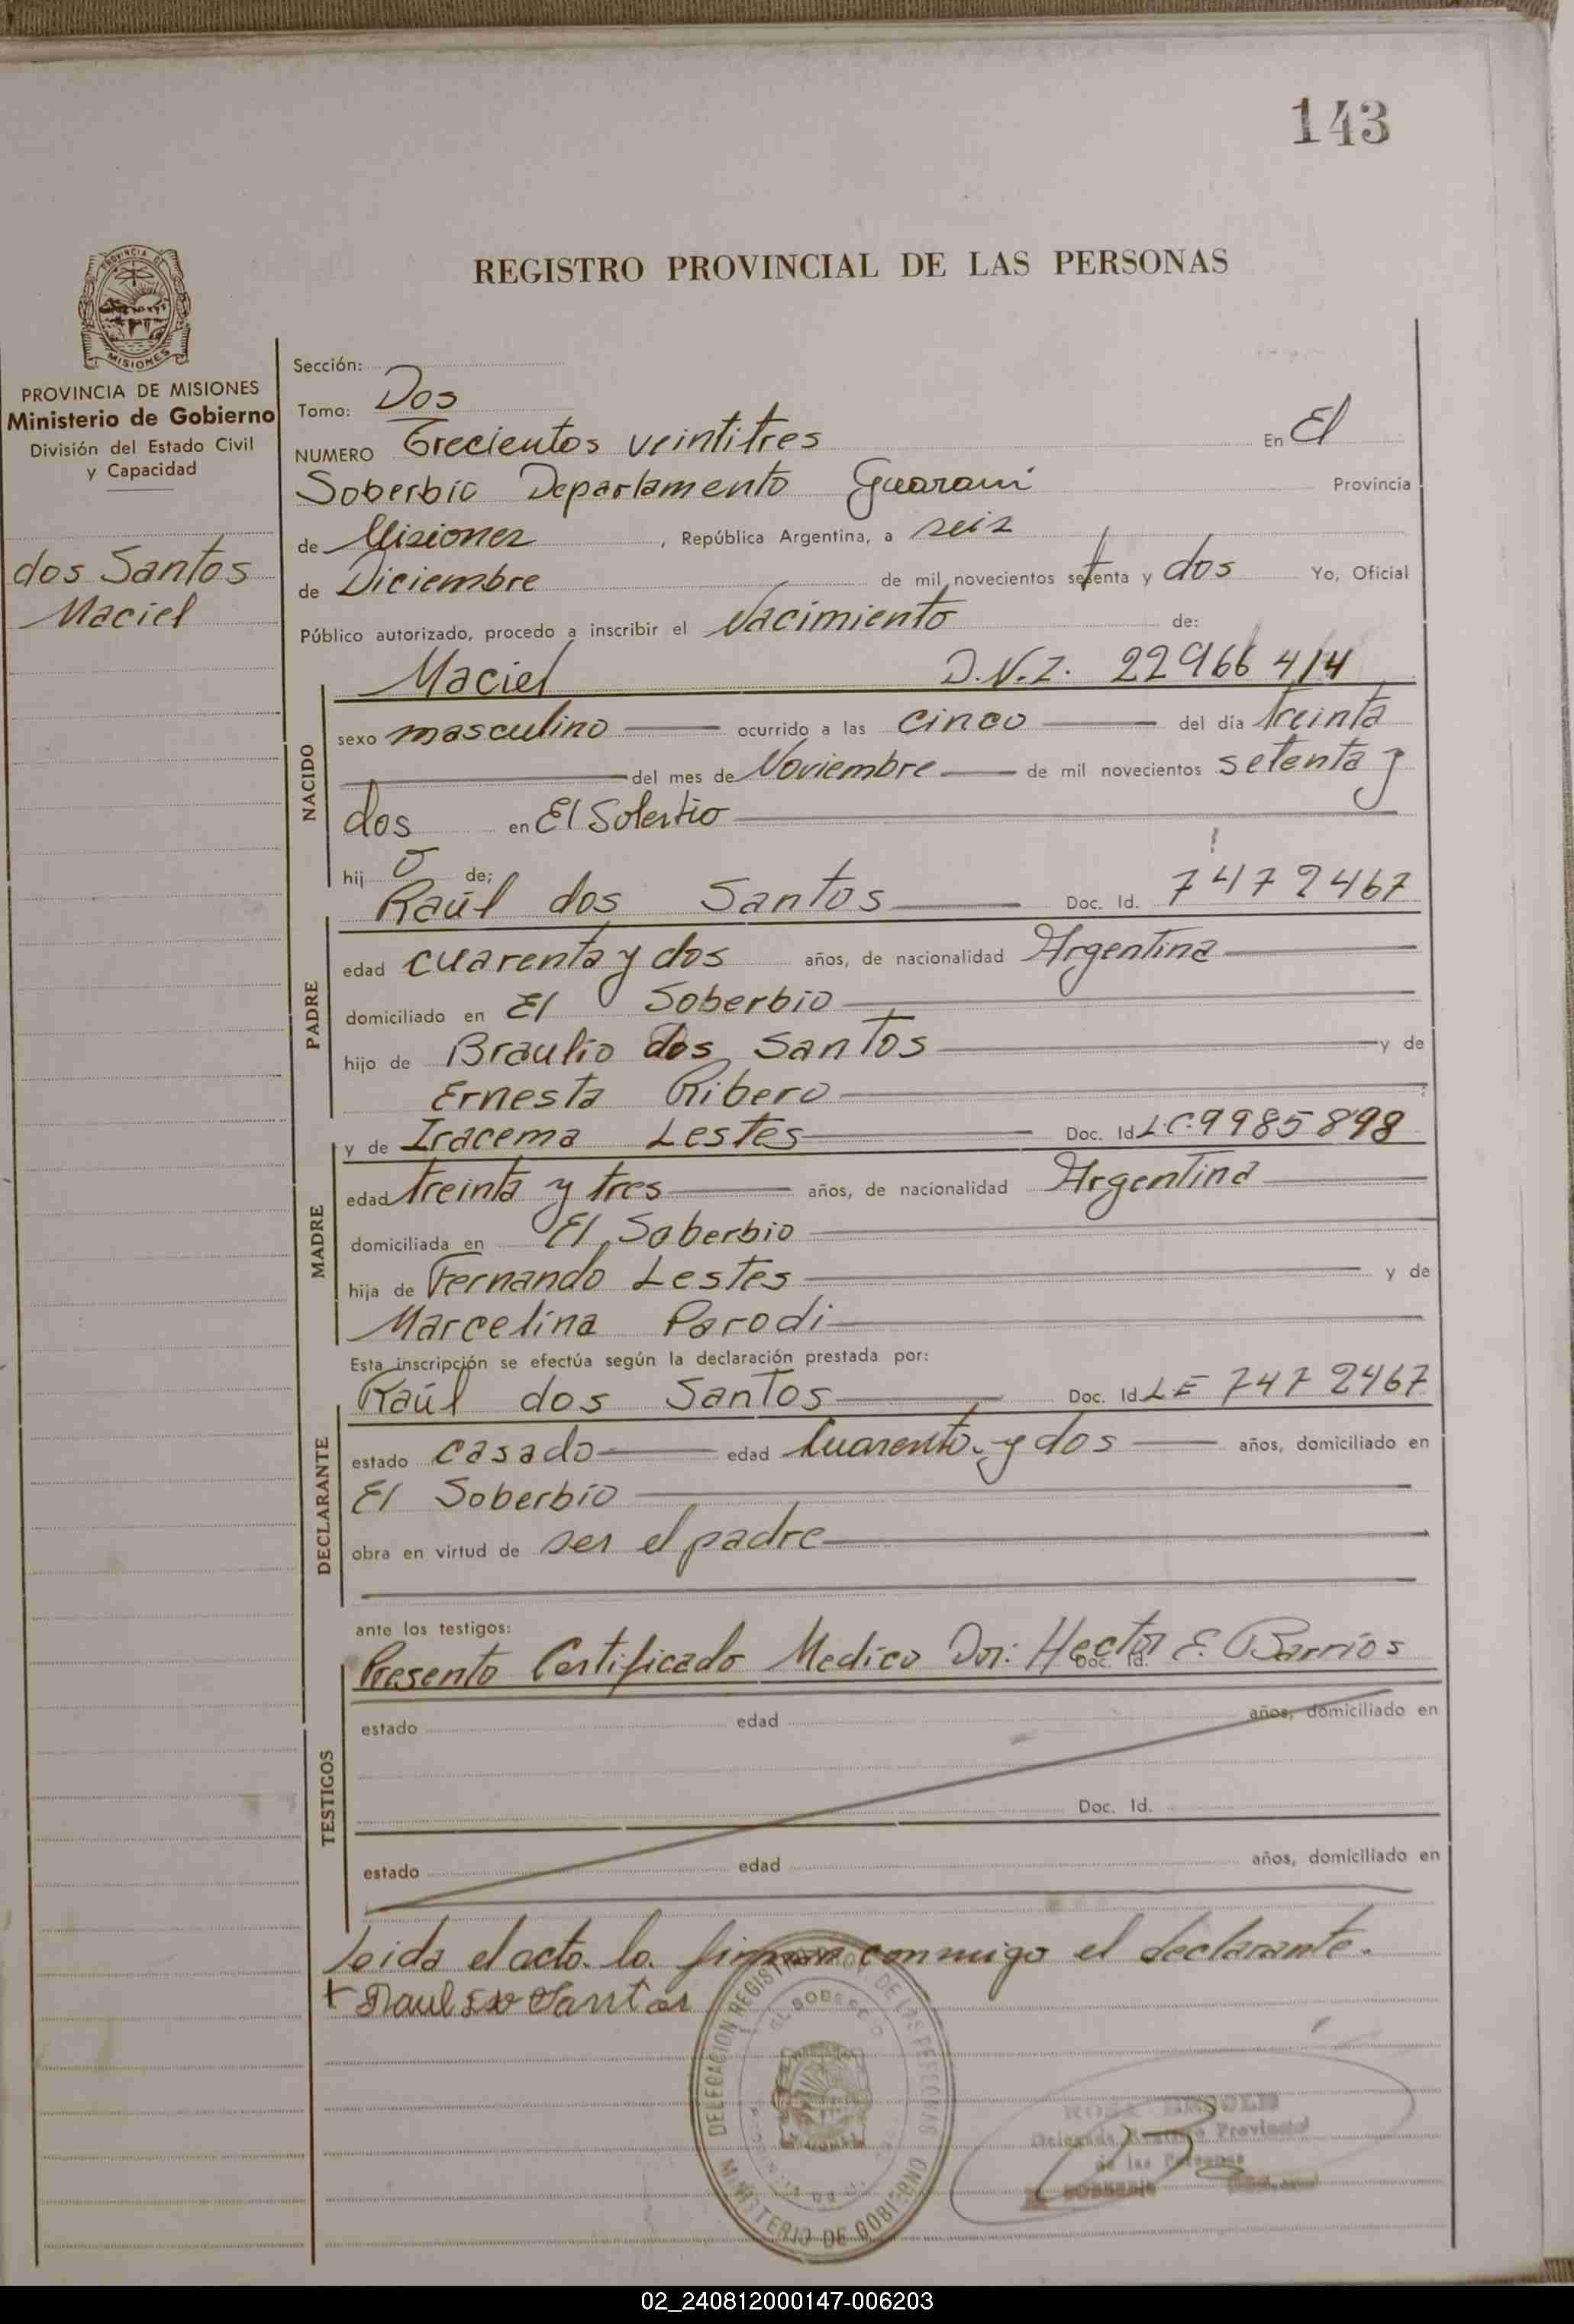 143
REGISTRO PROVINCIAL DE LAS PERSONAS
PROVINCIA DE MISIONES
PROVINCIA DE MISIONES
Ministerio de Gobierno
División del Estado Civil
y Capacidad
dos Santos
Maciel
Sección:
Tomo: Dos
NUMERO Trecientos veintitres En El
Soberbio Departamento Guarani Provincia
de Misiones, República Argentina, a seis
de Diciembre de mil novecientos setenta y dos Yo, Oficial
Público autorizado, procedo a inscribir el Nacimiento de:
Maciel D.N.I. 22966 414
NACIDO
sexo masculino ocurrido a las cinco del día treinta
del mes de Noviembre de mil novecientos setenta y
dos en El Soberbio
hij o de;
PADRE
Raúl dos Santos Doc. Id. 7472467
edad cuarenta y dos años, de nacionalidad Argentina
domiciliado en El Soberbio
hijo de Braulio dos Santos y de
Ernesta Ribero
MADRE
y de Iracema Lestes Doc. Id L.C. 9985898
edad treinta y tres años, de nacionalidad Argentina
domiciliada en El Soberbio
hija de Fernando Lestes y de
Marcelina Parodi
Esta inscripción se efectúa según la declaración prestada por:
DECLARANTE
Raúl dos Santos Doc. Id. LE 7472467
estado casado edad Cuarenta y dos años, domiciliado en
El Soberbio
obra en virtud de ser el padre
ante los testigos:
TESTIGOS
Presento Certificado Medico Dr: Hector E. Barrios Doc. Id.
estado edad años, domiciliado en
Doc. Id.
estado edad años, domiciliado en
Leida el acto. lo. firman conmigo el declarante.
+ Raul Santos
DELEGACION REGISTRO PROV. DE LAS PERSONAS
EL SOBERBIO
MISIONES
MINISTERIO DE GOBIERNO
ROSA
Delegada Registro Provincial
de las Personas
SOBERBIO
02_240812000147-006203